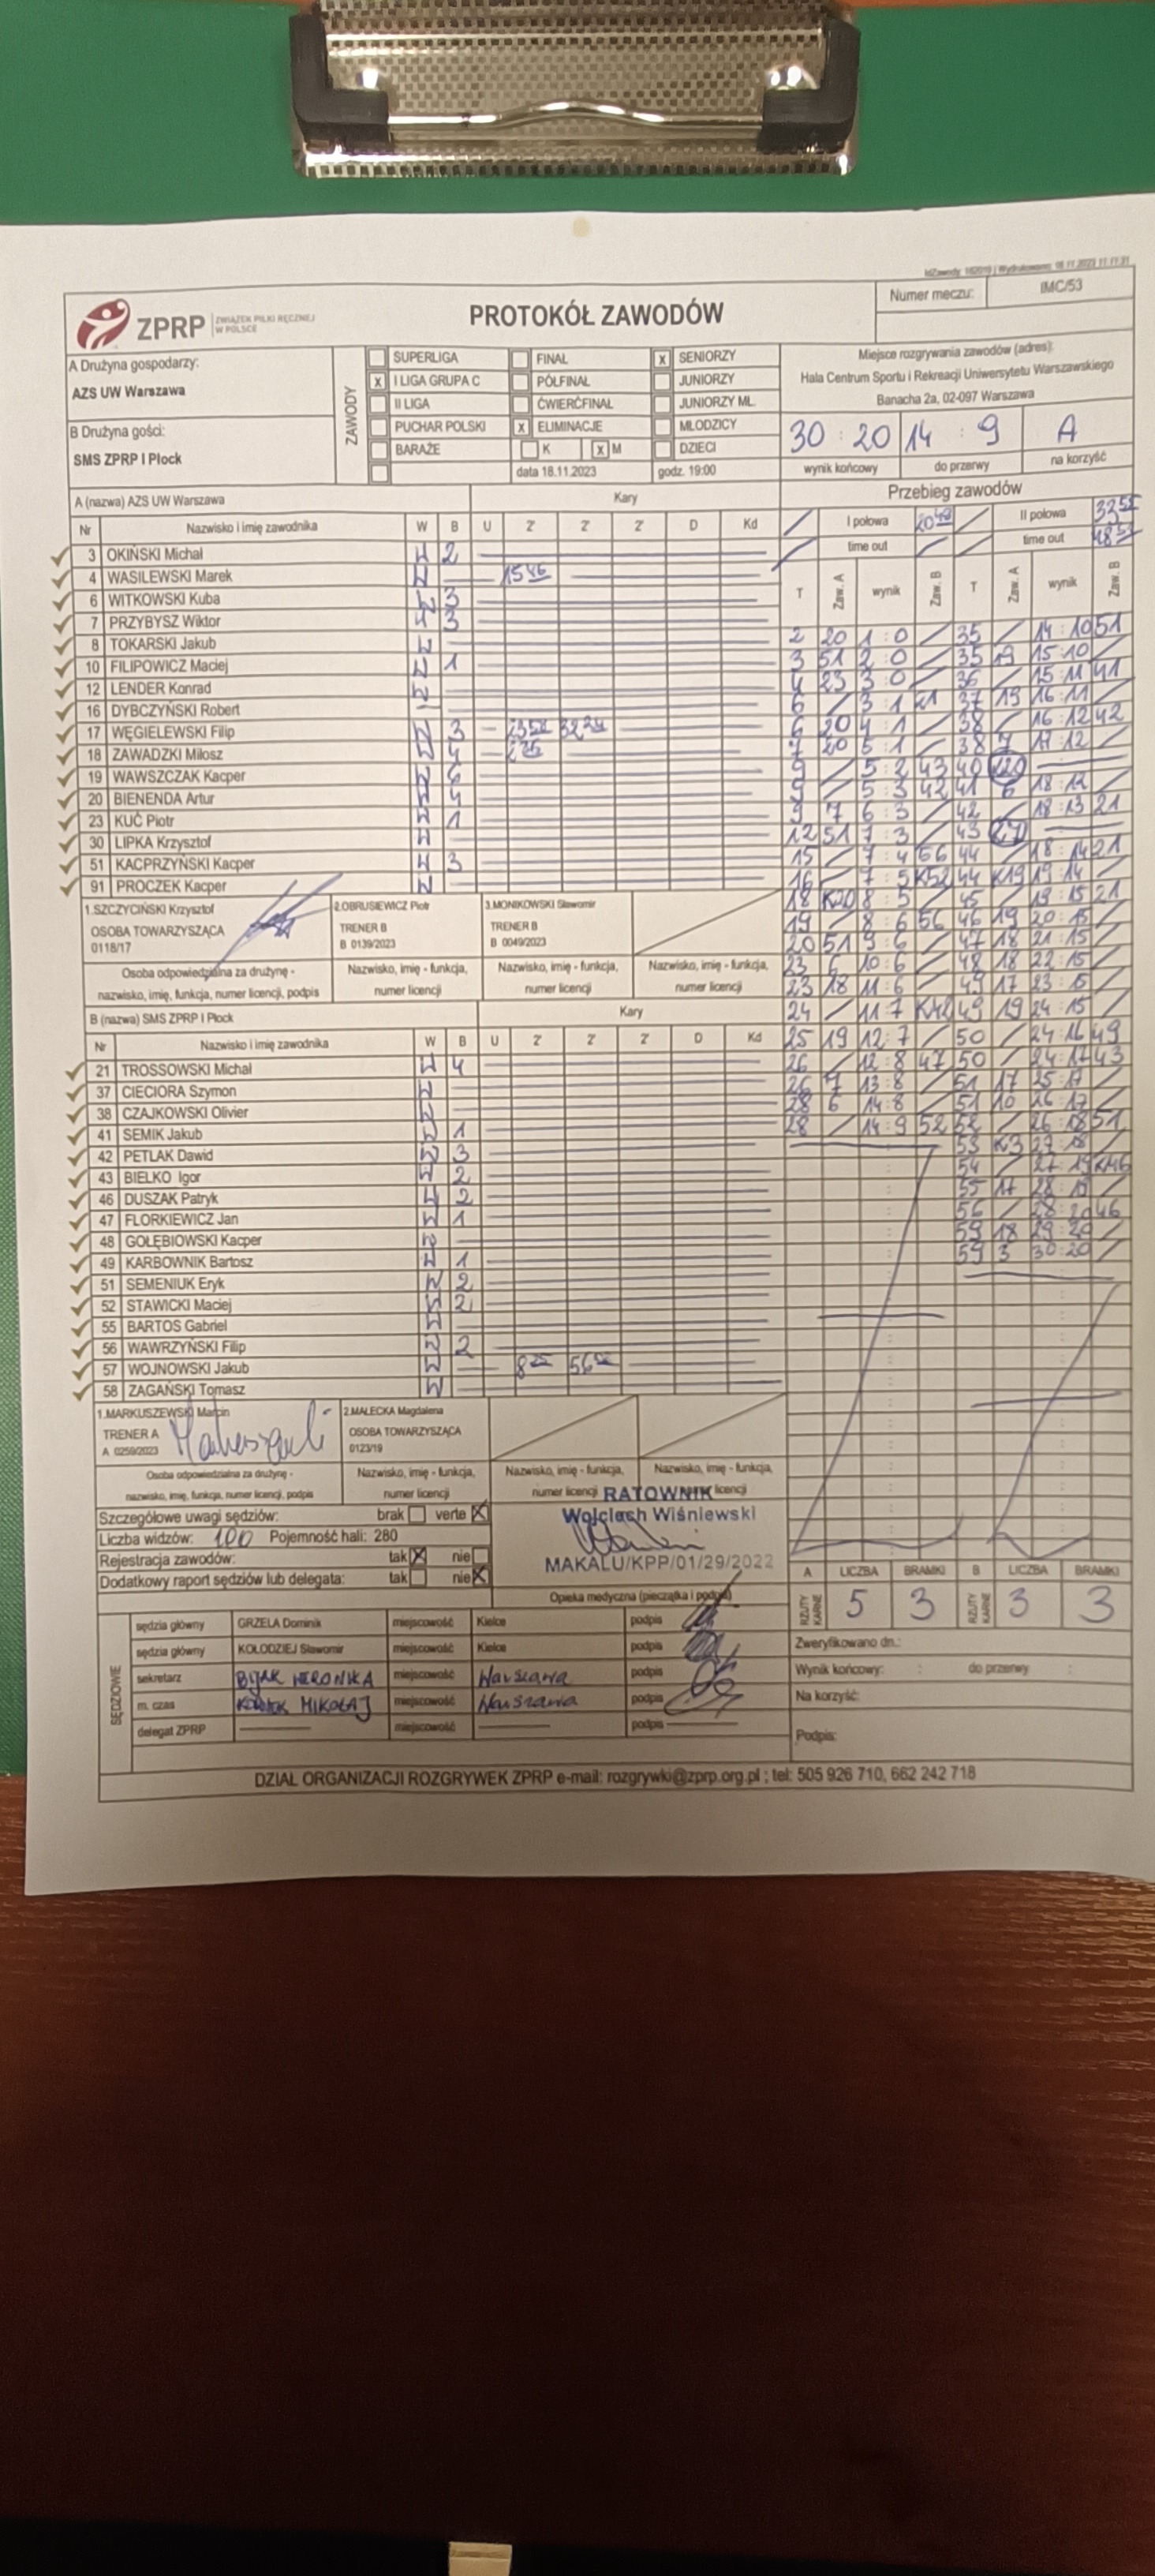 IdZawody: 182019 | Wydrukowano: 18.11.2023 11:11:31
ZPRP ZWIĄZEK PIŁKI RĘCZNEJ W POLSCE
PROTOKÓŁ ZAWODÓW
Numer meczu: IMC/53
A Drużyna gospodarzy:
AZS UW Warszawa
B Drużyna gości:
SMS ZPRP I Płock
ZAWODY
SUPERLIGA FINAŁ x SENIORZY
x I LIGA GRUPA C PÓŁFINAŁ JUNIORZY
II LIGA ĆWIERĆFINAŁ JUNIORZY MŁ.
PUCHAR POLSKI x ELIMINACJE MŁODZICY
BARAŻE K x M DZIECI
data 18.11.2023 godz. 19:00
Miejsce rozgrywania zawodów (adres):
Hala Centrum Sportu i Rekreacji Uniwersytetu Warszawskiego
Banacha 2a, 02-097 Warszawa
30 : 20 14 : 9 A
wynik końcowy do przerwy na korzyść
A (nazwa) AZS UW Warszawa Kary
Nr Nazwisko i imię zawodnika W B U 2' 2' 2' D Kd
3 OKIŃSKI Michał W 2
4 WASILEWSKI Marek W 15 46
6 WITKOWSKI Kuba W 3
7 PRZYBYSZ Wiktor W 3
8 TOKARSKI Jakub W
10 FILIPOWICZ Maciej W 1
12 LENDER Konrad W
16 DYBCZYŃSKI Robert W
17 WĘGIELEWSKI Filip W 3
18 ZAWADZKI Miłosz W 4
19 WAWSZCZAK Kacper W 6
20 BIENENDA Artur W 4
23 KUĆ Piotr W 1
30 LIPKA Krzysztof W
51 KACPRZYŃSKI Kacper W 3
91 PROCZEK Kacper W
1.SZCZYCIŃSKI Krzysztof 2.OBRUSIEWICZ Piotr 3.MONIKOWSKI Sławomir
OSOBA TOWARZYSZĄCA TRENER B TRENER B
0118/17 B 0139/2023 B 0049/2023
Osoba odpowiedzialna za drużynę - Nazwisko, imię - funkcja, Nazwisko, imię - funkcja, Nazwisko, imię - funkcja,
nazwisko, imię, funkcja, numer licencji, podpis numer licencji numer licencji numer licencji
B (nazwa) SMS ZPRP I Płock Kary
Nr Nazwisko i imię zawodnika W B U 2' 2' 2' D Kd
21 TROSSOWSKI Michał W 4
37 CIECIORA Szymon W
38 CZAJKOWSKI Olivier W
41 SEMIK Jakub W 1
42 PETLAK Dawid W 3
43 BIELKO Igor W 2
46 DUSZAK Patryk W 2
47 FLORKIEWICZ Jan W 1
48 GOŁĘBIOWSKI Kacper W
49 KARBOWNIK Bartosz W 1
51 SEMENIUK Eryk W 2
52 STAWICKI Maciej W 2
55 BARTOS Gabriel W
56 WAWRZYŃSKI Filip W 2
57 WOJNOWSKI Jakub W
58 ZAGAŃSKI Tomasz W
1.MARKUSZEWSKI Marcin 2.MALECKA Magdalena
TRENER A OSOBA TOWARZYSZĄCA
A 0259/2023 0123/19
Osoba odpowiedzialna za drużynę - Nazwisko, imię - funkcja, Nazwisko, imię - funkcja, Nazwisko, imię - funkcja,
nazwisko, imię, funkcja, numer licencji, podpis numer licencji numer licencji numer licencji
Szczegółowe uwagi sędziów: brak verte X
Liczba widzów: 100 Pojemność hali: 280
Rejestracja zawodów: tak X nie
Dodatkowy raport sędziów lub delegata: tak nie X
RATOWNIK
Wojciech Wiśniewski
MAKALU/KPP/01/29/2022
Opieka medyczna (pieczątka i podpis)
SĘDZIOWIE
sędzia główny GRZELA Dominik miejscowość Kielce podpis
sędzia główny KOŁODZIEJ Sławomir miejscowość Kielce podpis
sekretarz BIJAK WERONIKA miejscowość Warszawa podpis
m. czas MIKOŁAJ miejscowość Warszawa podpis
delegat ZPRP miejscowość podpis
Przebieg zawodów
I połowa II połowa
time out time out
T Zaw. A wynik Zaw. B T Zaw. A wynik Zaw. B
2 20 1 : 0 35 14 : 10 51
3 51 2 : 0 35 19 15 : 10
4 23 3 : 0 36 15 : 11 41
6 3 : 1 21 37 19 16 : 11
6 20 4 : 1 38 16 : 12 42
7 20 5 : 1 38 7 17 : 12
9 5 : 2 43 40 K20
9 5 : 3 42 41 6 18 : 12
9 7 6 : 3 42 18 : 13 21
12 51 7 : 3 43
15 7 : 4 56 44 18 : 14 21
16 7 : 5 K52 44 K19 19 : 14
18 K20 8 : 5 45 19 : 15 21
19 8 : 6 56 46 19 20 : 15
20 51 9 : 6 47 18 21 : 15
23 6 10 : 6 48 18 22 : 15
23 18 11 : 6 49 17 23 : 15
24 11 : 7 K42 49 19 24 : 15
25 19 12 : 7 50 24 : 16 49
26 12 : 8 47 50 24 : 17 43
26 7 13 : 8 51 17 25 : 17
28 6 14 : 8 51 10 26 : 17
28 14 : 9 52 52 26 : 18 51
53 K3 27 : 18
54 27 : 19 K46
55 17 28 : 19
56 28 : 20 46
59 18 29 : 20
59 3 30 : 20
A LICZBA BRAMKI B LICZBA BRAMKI
RZUTY KARNE 5 3 RZUTY KARNE 3 3
Zweryfikowano dn.:
Wynik końcowy: : do przerwy :
Na korzyść:
Podpis:
DZIAŁ ORGANIZACJI ROZGRYWEK ZPRP e-mail: rozgrywki@zprp.org.pl ; tel: 505 926 710, 662 242 718